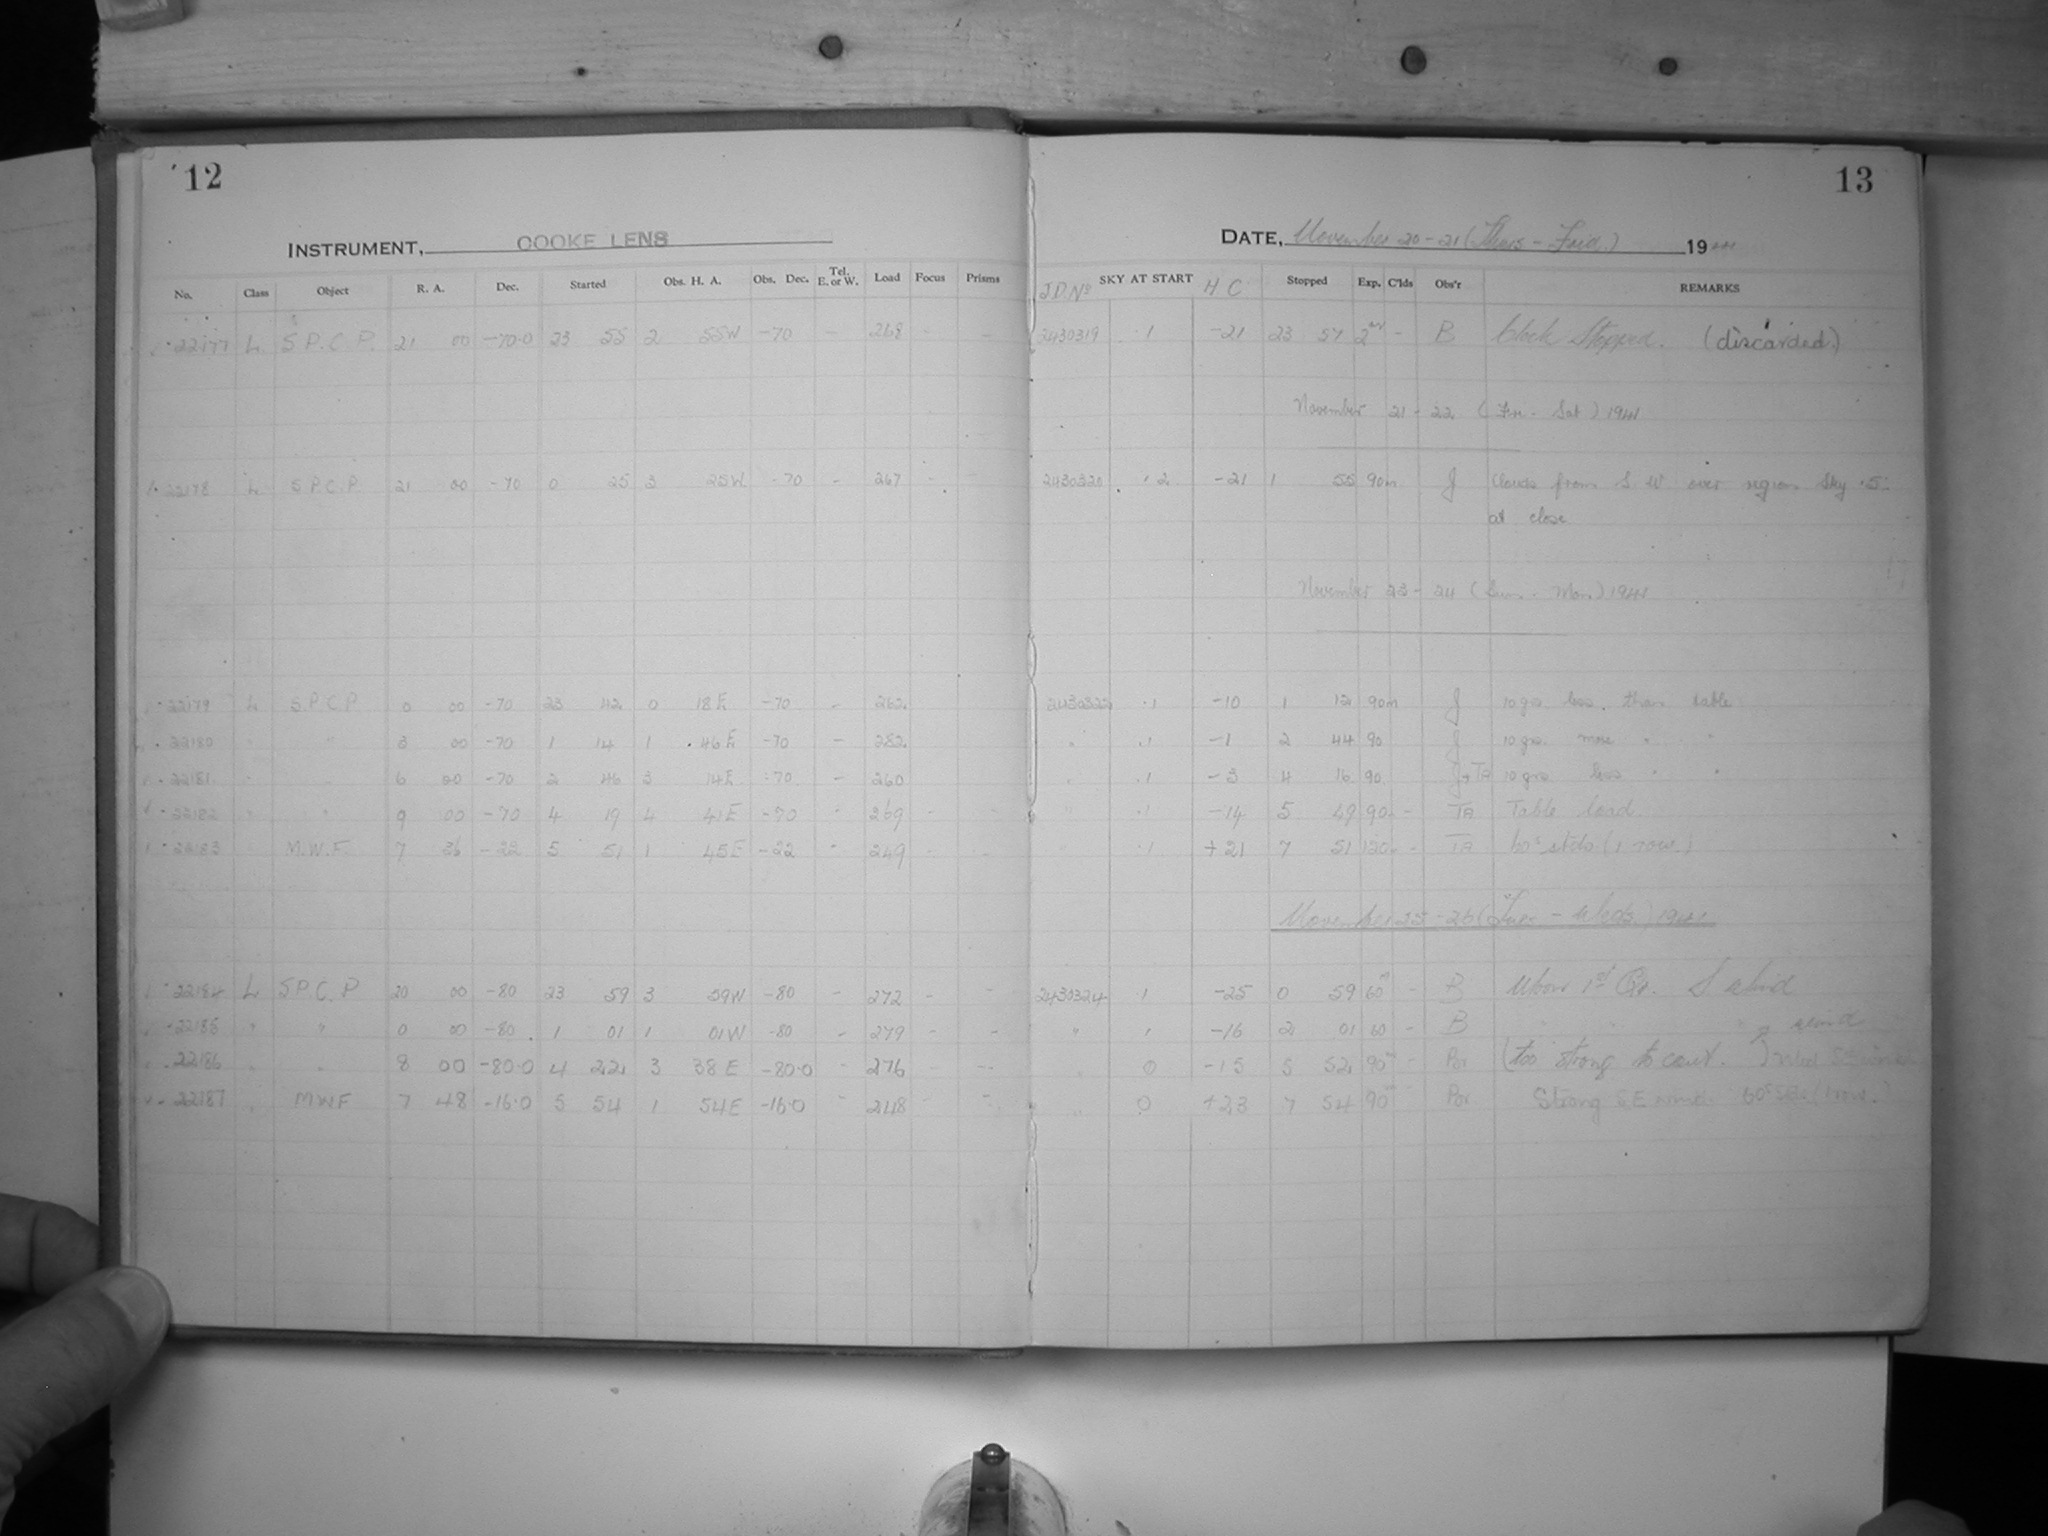 12
INSTRUMENT, COOKE LENS
No. Class Object R. A. Dec. Started Obs. H. A. Obs. Dec. Tel. E. or W. Load Focus Prisms
22177 L S.P.C.P. 21 00 -70.0 23 55 2 55W -70 - 268 - -
22178 L S.P.C.P 21 00 -70 0 25 3 25W -70 - 267 - -
22179 L S.P.C.P. 0 00 -70 23 42 0 18E -70 - 262
22180 " " 3 00 -70 1 14 1 46E -70 - 282
22181 " " 6 00 -70 2 46 3 14E -70 - 260
22182 " " 9 00 -70 4 19 4 41E -70 - 269 - -
22183 " M.W.F. 7 36 -22 5 51 1 45E -22 - 249 - -
22184 L S.P.C.P 20 00 -80 23 59 3 59W -80 - 272 - -
22185 " " 0 00 -80 1 01 1 01W -80 - 279 - -
22186 " " 8 00 -80.0 4 22 3 38E -80.0 - 276 - -
22187 " MWF 7 48 -16.0 5 54 1 54E -16.0 - 248 - -
13
DATE, November 20-21 (Thurs-Frid.) 1941
J.D. No SKY AT START H C Stopped Exp. C'lds Obs'r REMARKS
2430319 .1 -21 23 57 2m - B Clock Stopped. (discarded.)
November 21-22 (Fri-Sat) 1941
2430320 .2 -21 1 55 90m J Clouds from S W over region Sky .5
at close
November 23-24 (Sun-Mon) 1941
2430322 .1 -10 1 12 90m J 10 grs less than table
" .1 -1 2 44 90 J 10 grs. more " "
" .1 -3 4 16 90 J+TA 10 grs less " "
" .1 -14 5 49 90 - TA Table load.
" .1 +21 7 51 120 - TA 60s stds (1 row.)
November 25-26 (Tues-Weds.) 1941
2430324 1 -25 0 59 60m - B Moon 1st Qr. S wind
" 1 -16 2 01 60 - B " " " wind
" 0 -15 5 52 90m - Por (too strong to count.)
" 0 +23 7 54 90m - Por Strong S.E wind. 60s Sds. (1 row.)